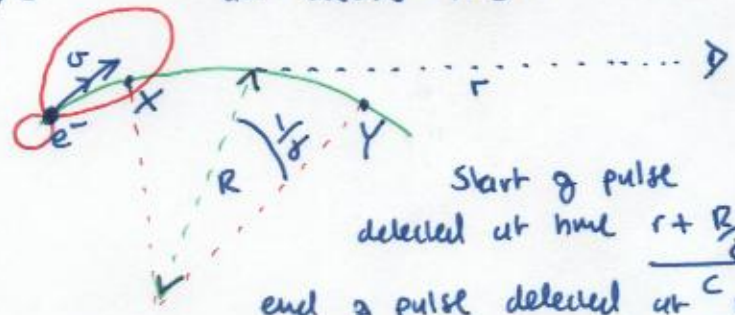 v
e⁻
X
r
R
1/γ
Y
Start of pulse
detected at time r + R/
c
end of pulse detected at